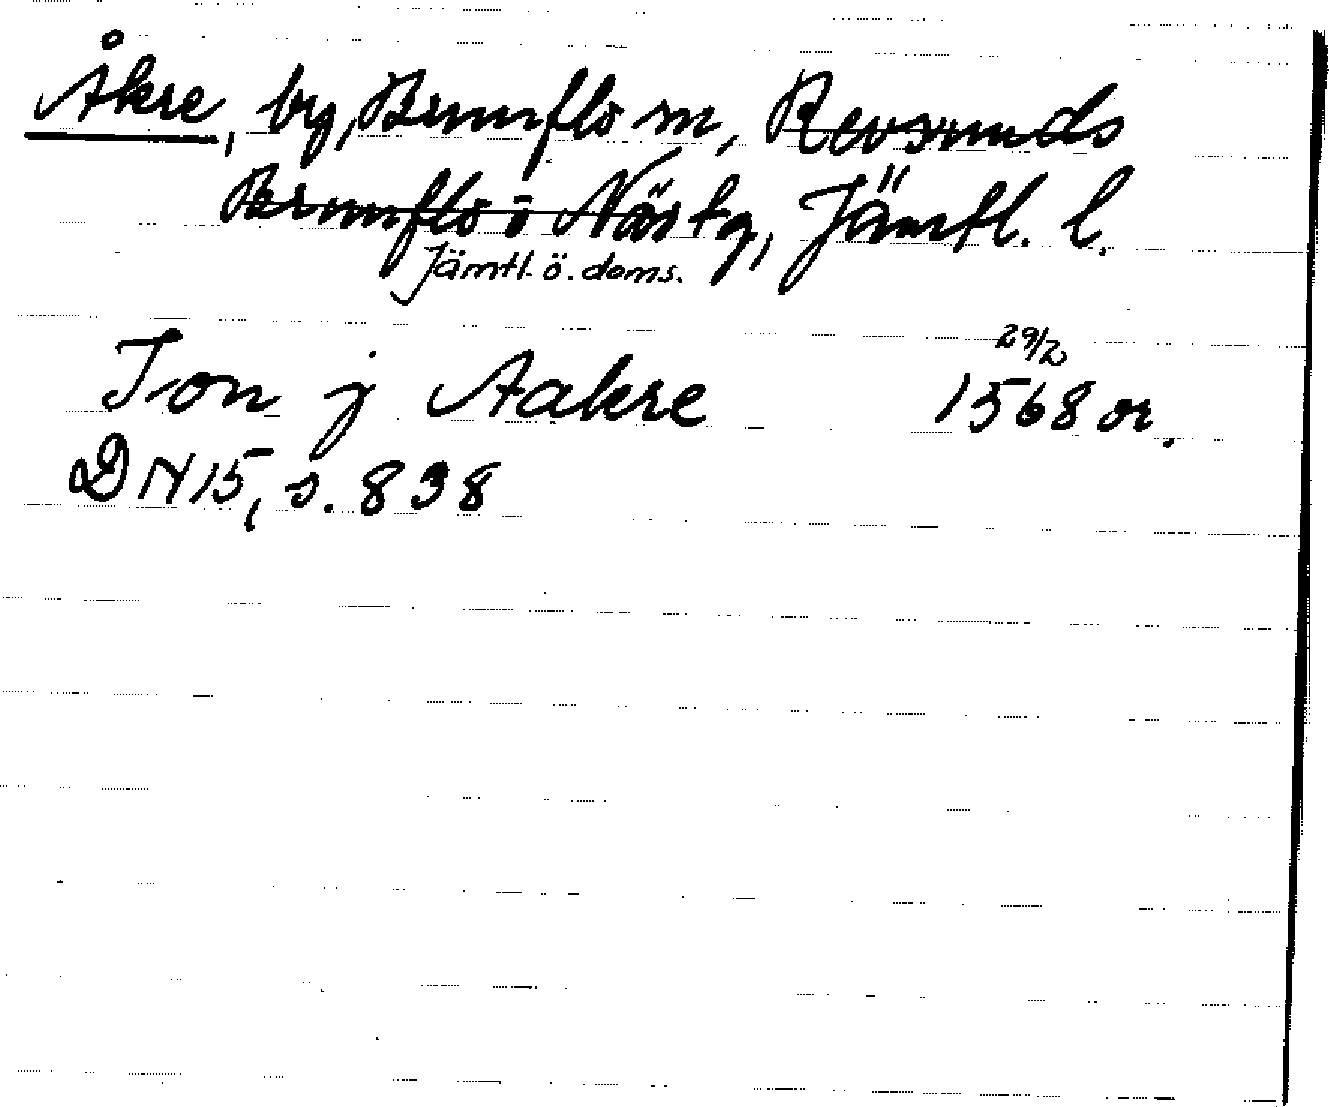 Åkre, by, Brunflo sn, Revsunds
Brunflo o Näs tg, Jämtl. l.
Jämtl. ö. doms.
29/2
Jon j Aakre 1568 or.
DN 15, s. 838